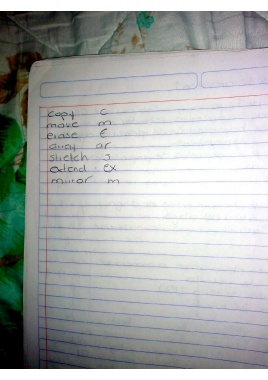 copy c
move m
erase E
array ar
stretch s
extend EX
mirror m